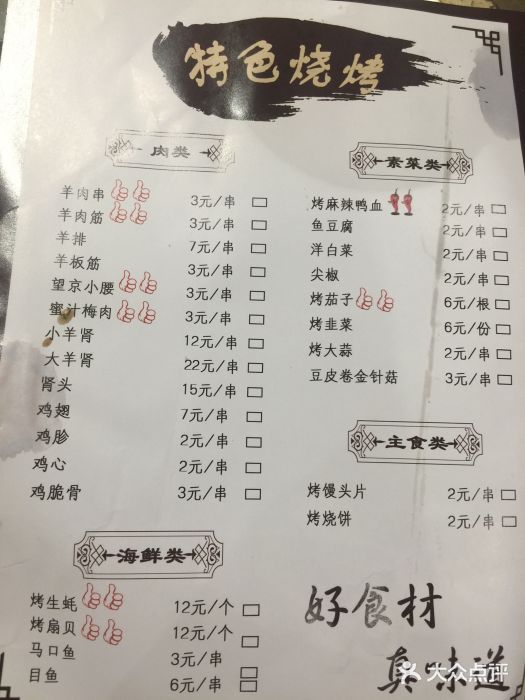 特色烧烤
肉类
羊肉串 3元/串
羊肉筋 3元/串
羊排 7元/串
羊板筋 3元/串
望京小腰 3元/串
蜜汁梅肉 3元/串
小羊肾 12元/串
大羊肾 22元/串
肾头 15元/串
鸡翅 7元/串
鸡胗 2元/串
鸡心 2元/串
鸡脆骨 3元/串
海鲜类
烤生蚝 12元/个
烤扇贝 12元/个
马口鱼 3元/串
目鱼 6元/串
素菜类
烤麻辣鸭血 2元/串
鱼豆腐 2元/串
洋白菜 2元/串
尖椒 2元/串
烤茄子 6元/根
烤韭菜 6元/份
烤大蒜 2元/串
豆皮卷金针菇 3元/串
主食类
烤馒头片 2元/串
烤烧饼 2元/串
好食材
真味道
大众点评